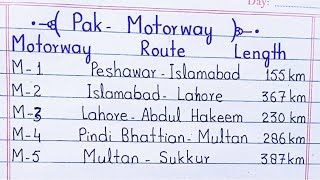 Day:
Pak - Motorway
Motorway Route Length
M-1 Peshawar - Islamabad 155 km
M-2 Islamabad - Lahore 367 km
M-3 Lahore - Abdul Hakeem 230 km
M-4 Pindi Bhattian - Multan 286 km
M-5 Multan - Sukkur 387 km